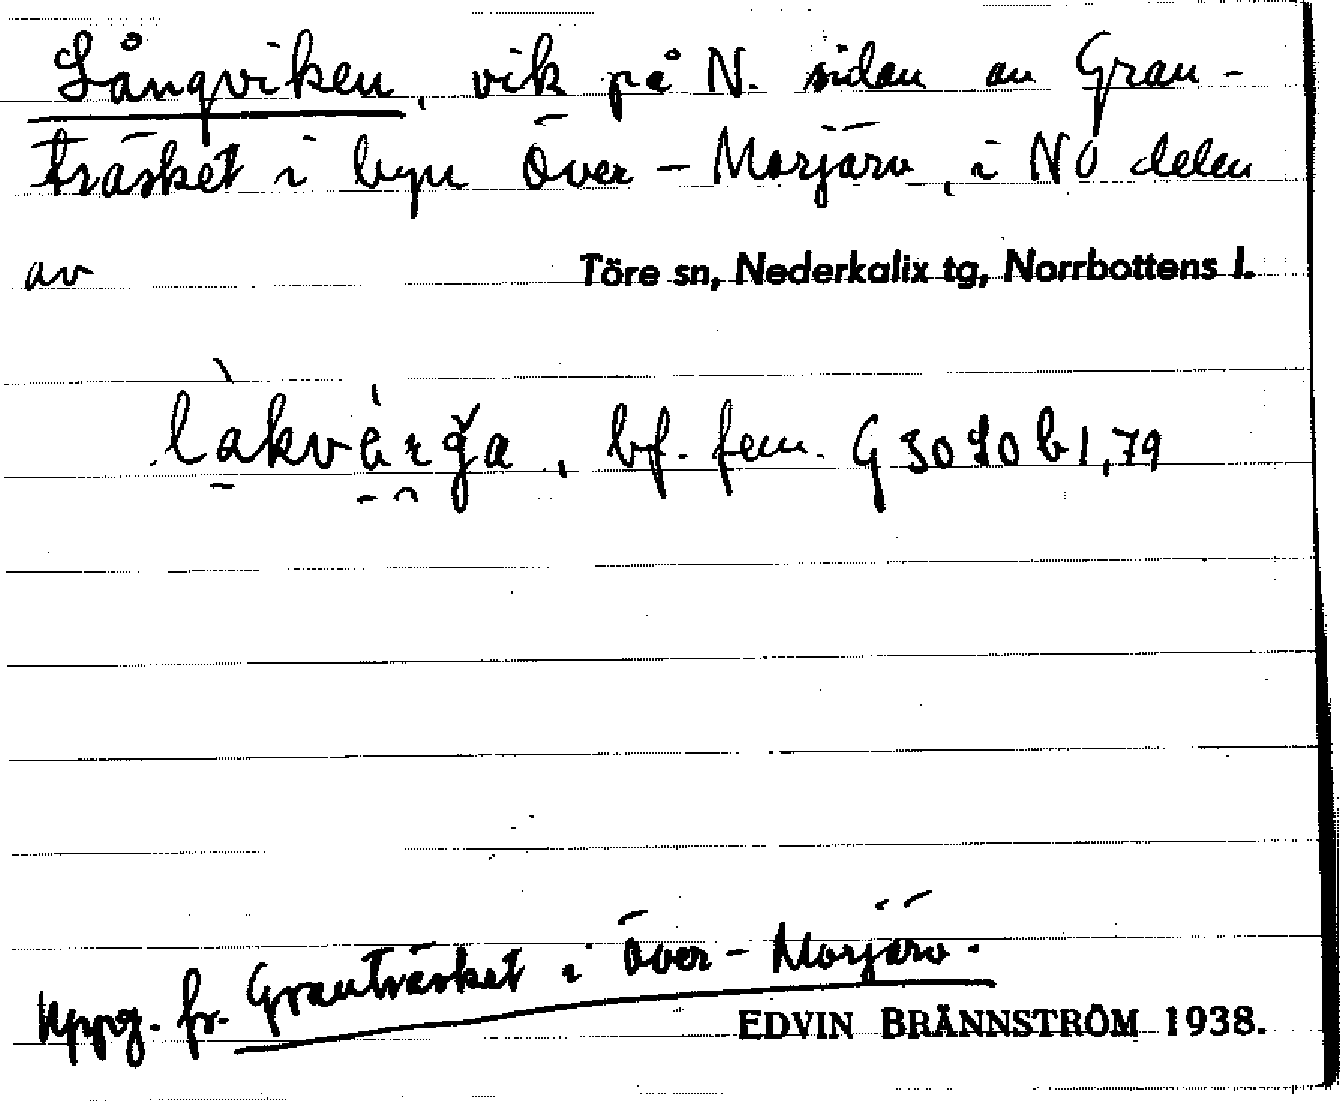 Långviken, vik på N. sidan av Gran-
träsket i byn Över-Morjärv, i NÖ delen
av Töre sn, Nederkalix tg, Norrbottens l.
bf. fem. G 3020 b 1,79
Uppg. fr. Granträsket i Över-Morjärv.
EDVIN BRÄNNSTRÖM 1938.